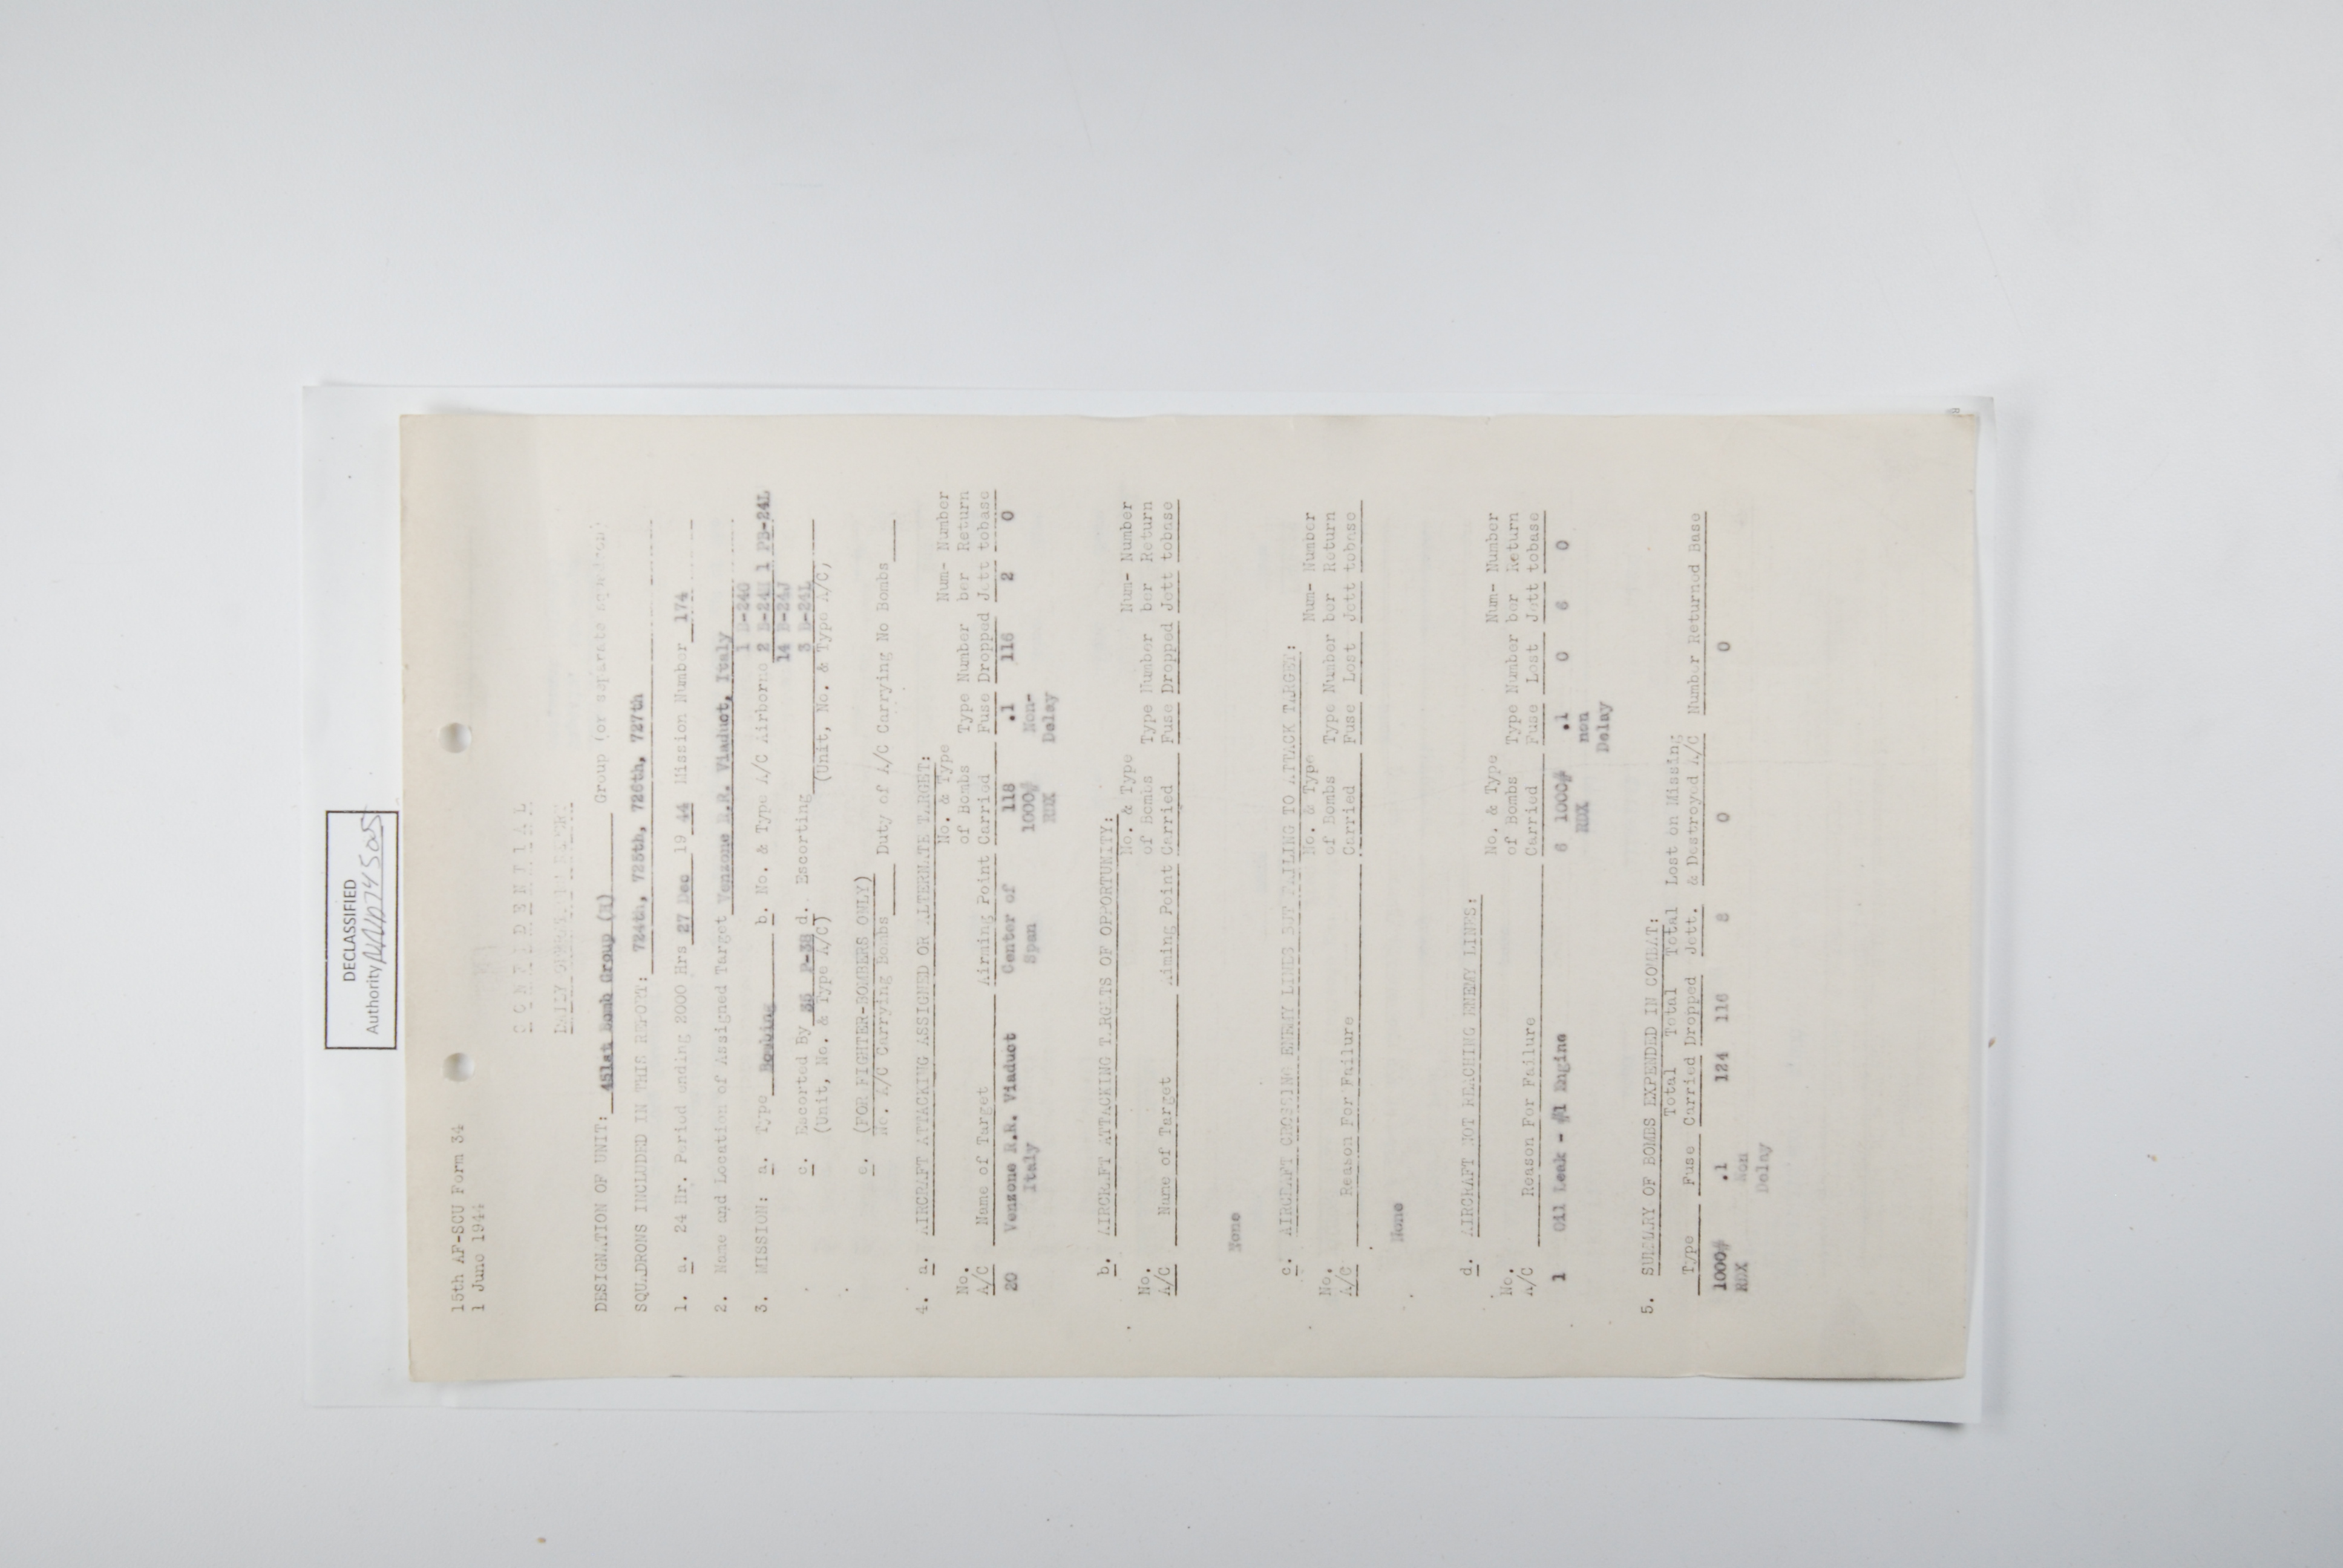 DECLASSIFIED
Authority NND745005
15th AF-SCU Form 34
1 June 1944
C O N F I D E N T I A L
DAILY OPERATIONAL REPORT
DESIGNATION OF UNIT: 451st Bomb Group (H) Group (or separate squadron)
SQUADRONS INCLUDED IN THIS REPORT: 724th, 725th, 726th, 727th
1. a. 24 Hr. Period ending 2000 Hrs 27 Dec 19 44 Mission Number 174
2. Name and Location of Assigned Target Venzone R.R. Viaduct, Italy
1 B-24G
3. MISSION: a. Type Bombing b. No. & Type A/C Airborne 2 B-24H 1 PB-24L
14 B-24J
3 B-24L
c. Escorted By 35 P-38 d. Escorting
(Unit, No. & Type A/C) (Unit, No. & Type A/C)
e. (FOR FIGHTER-BOMBERS ONLY)
No. A/C Carrying Bombs Duty of A/C Carrying No Bombs
4. a. AIRCRAFT ATTACKING ASSIGNED OR ALTERNATE TARGET:
No. & Type Num- Number
No. of Bombs Type Number ber Return
A/C Name of Target Airming Point Carried Fuse Dropped Jett tobase
20 Venzone R.R. Viaduct Center of 118 .1 116 2 0
Italy Span 1000# Non-
RDX Delay
b. AIRCRAFT ATTACKING TARGETS OF OPPORTUNITY:
No. & Type Num- Number
No. of Bombs Type Number ber Return
A/C Name of Target Aiming Point Carried Fuse Dropped Jett tobase
None
c. AIRCRAFT CROSSING ENEMY LINES BUT FAILING TO ATTACK TARGET:
No. & Type Num- Number
No. of Bombs Type Number ber Return
A/C Reason For Failure Carried Fuse Lost Jett tobase
None
d. AIRCRAFT NOT REACHING ENEMY LINES:
No. & Type Num- Number
No. of Bombs Type Number ber Return
A/C Reason For Failure Carried Fuse Lost Jett tobase
1 Oil Leak - #1 Engine 6 1000# .1 0 6 0
RDX non
Delay
5. SUMMARY OF BOMBS EXPENDED IN COMBAT:
Total Total Total Lost on Missing
Type Fuse Carried Dropped Jett. & Destroyed A/C Number Returned Base
1000# .1 124 116 8 0 0
RDX Non
Delay